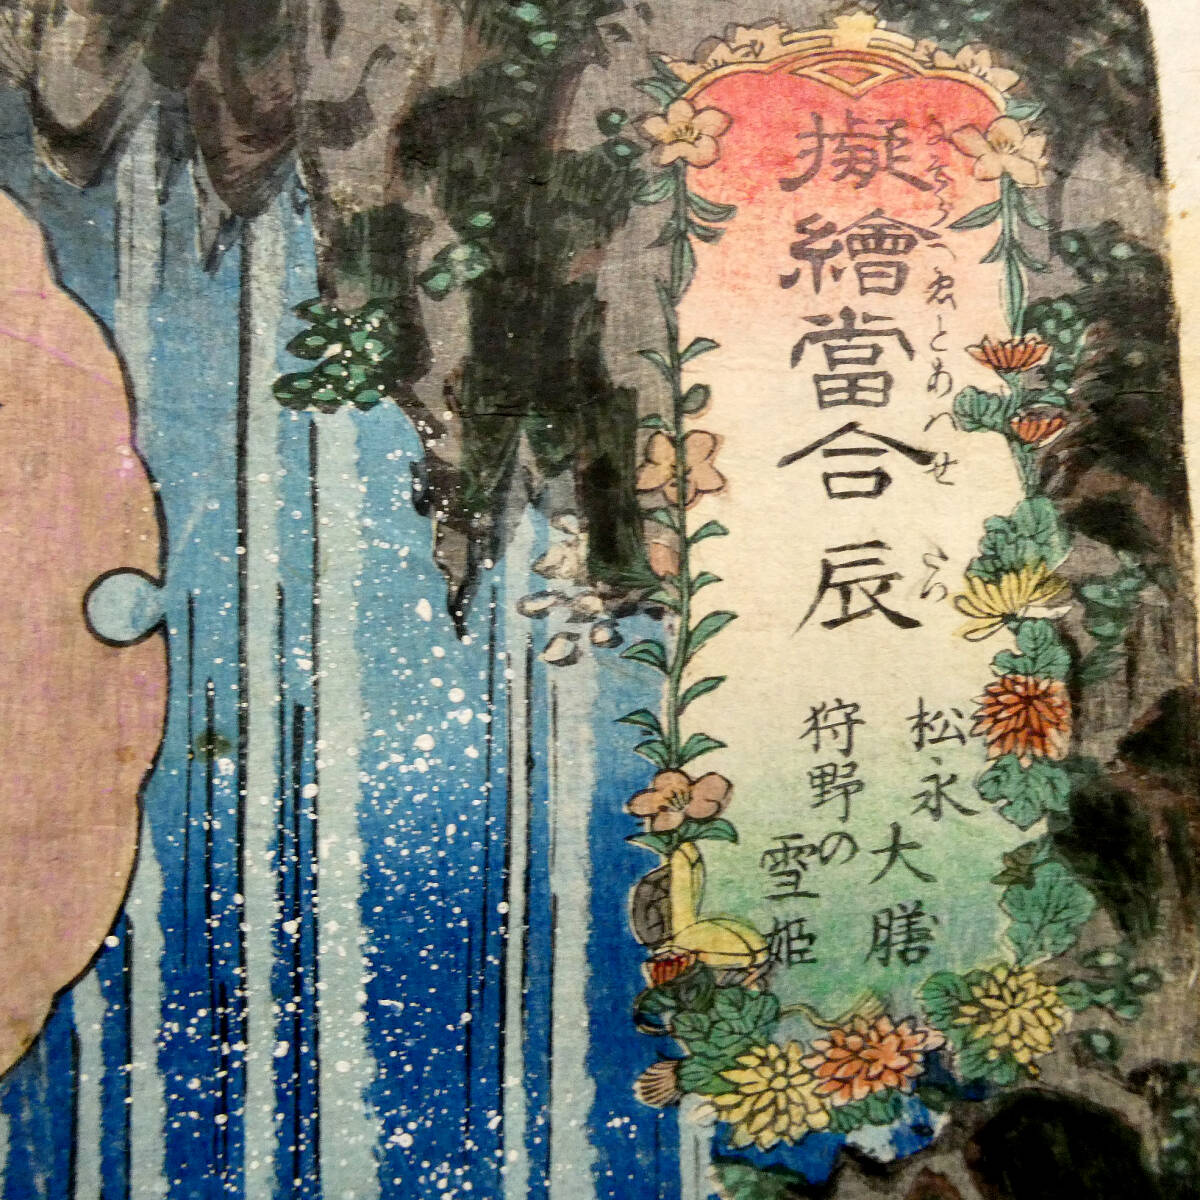 擬繪當合辰
なぞらへゑとあはせ たつ
松永大膳
狩野の雪姫